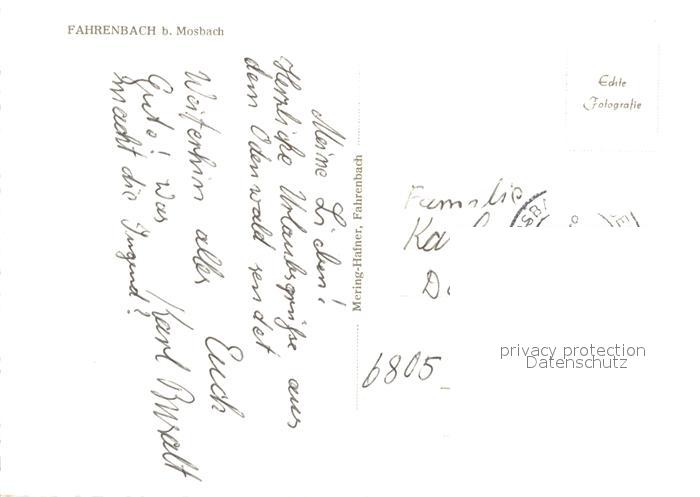 FAHRENBACH b. Mosbach
Echte
Fotografie
Meine Lieben!
Herzliche Urlaubsgrüße aus
dem Odenwald sendet
Euch
Weiterhin alles
Gute! Was
macht die Jugend?
Karl
Mering-Hafner, Fahrenbach
Familie
Ka
D
6805
privacy protection
Datenschutz